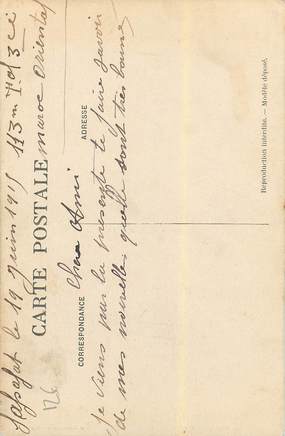 Safsafat le 19 Juin 1915 113me Tal 3 Cie
Maroc Oriental
CARTE POSTALE
CORRESPONDANCE
ADRESSE
Cher Ami
Je viens par la présente te faire savoir
de mes nouvelles quelle sont très bonne
Reproduction interdite. — Modèle déposé.
126